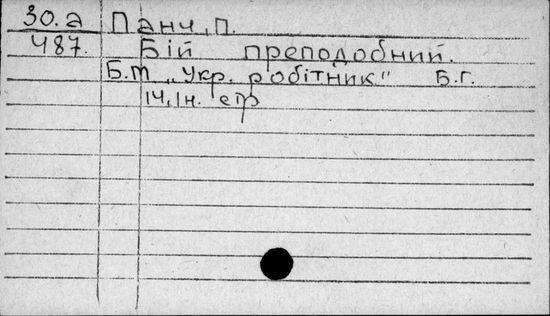 30.а Панч, П.
487. Бій преподобний.
Б.м „Укр. робітник" Б.г.
14, Ін. стр